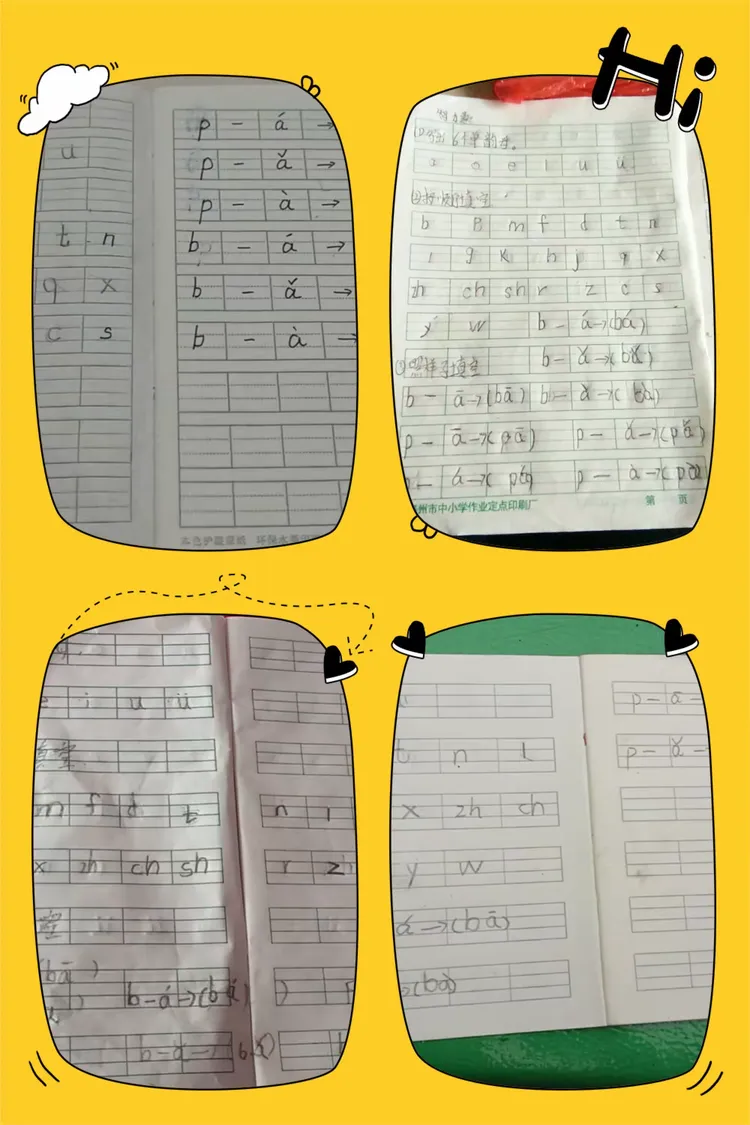 Hi
u
t n
q x
c s
p - á →
p - ǎ →
p - à →
b - á →
b - ǎ →
b - à →
a o e i u ü
b p m f d t n
l g k h j q x
zh ch sh r z c s
y w b - á→(bá)
照样子填空 b - ǎ→(bǎ)
b - ā→(bā) b - à→(bà)
p - ā→(pā) p - ǎ→(pǎ)
p - á→(pá) p - à→(pà)
州市中小学作业定点印刷厂 第 页
e i u ü
填空
m f d t
x zh ch sh
空
(bā)
b-á→(bá)
b-ǎ→
n l
r z
t n l
x zh ch
y w
á→(bā)
(bà)
p - ā -
p - ǎ -